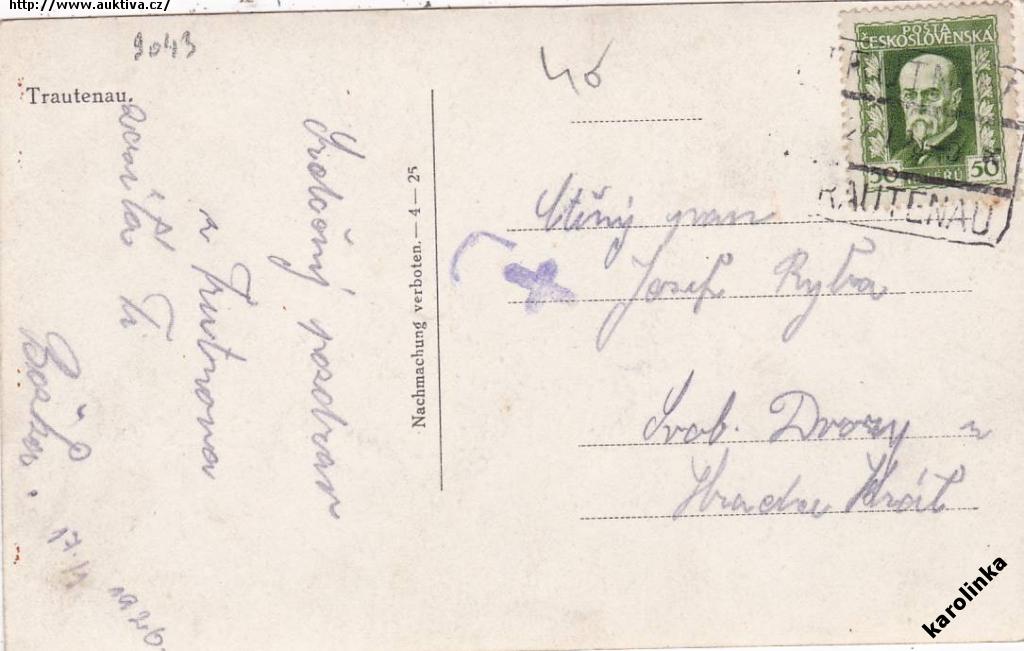 http://www.auktiva.cz/
9043
Trautenau.
Srdečný pozdrav
z Trutnova
zasílá Ti
17.
Nachmachung verboten.—4—25
POŠTA
ČESKOSLOVENSKÁ
50 HALÉŘŮ 50
TRAUTENAU
Ctěný pan
Josef Ryba
Svob. Dvory u
Hradce Král
karolinka